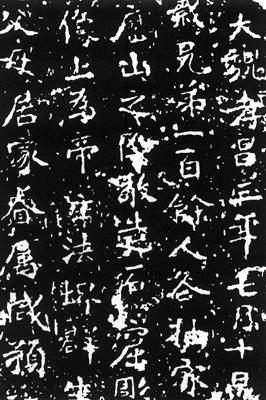 大魏孝昌三年七月十日
義兄弟一百餘人各抽家
歷山之陰敬造石窟彫
像上為帝主法界群生
父母居家眷屬咸預